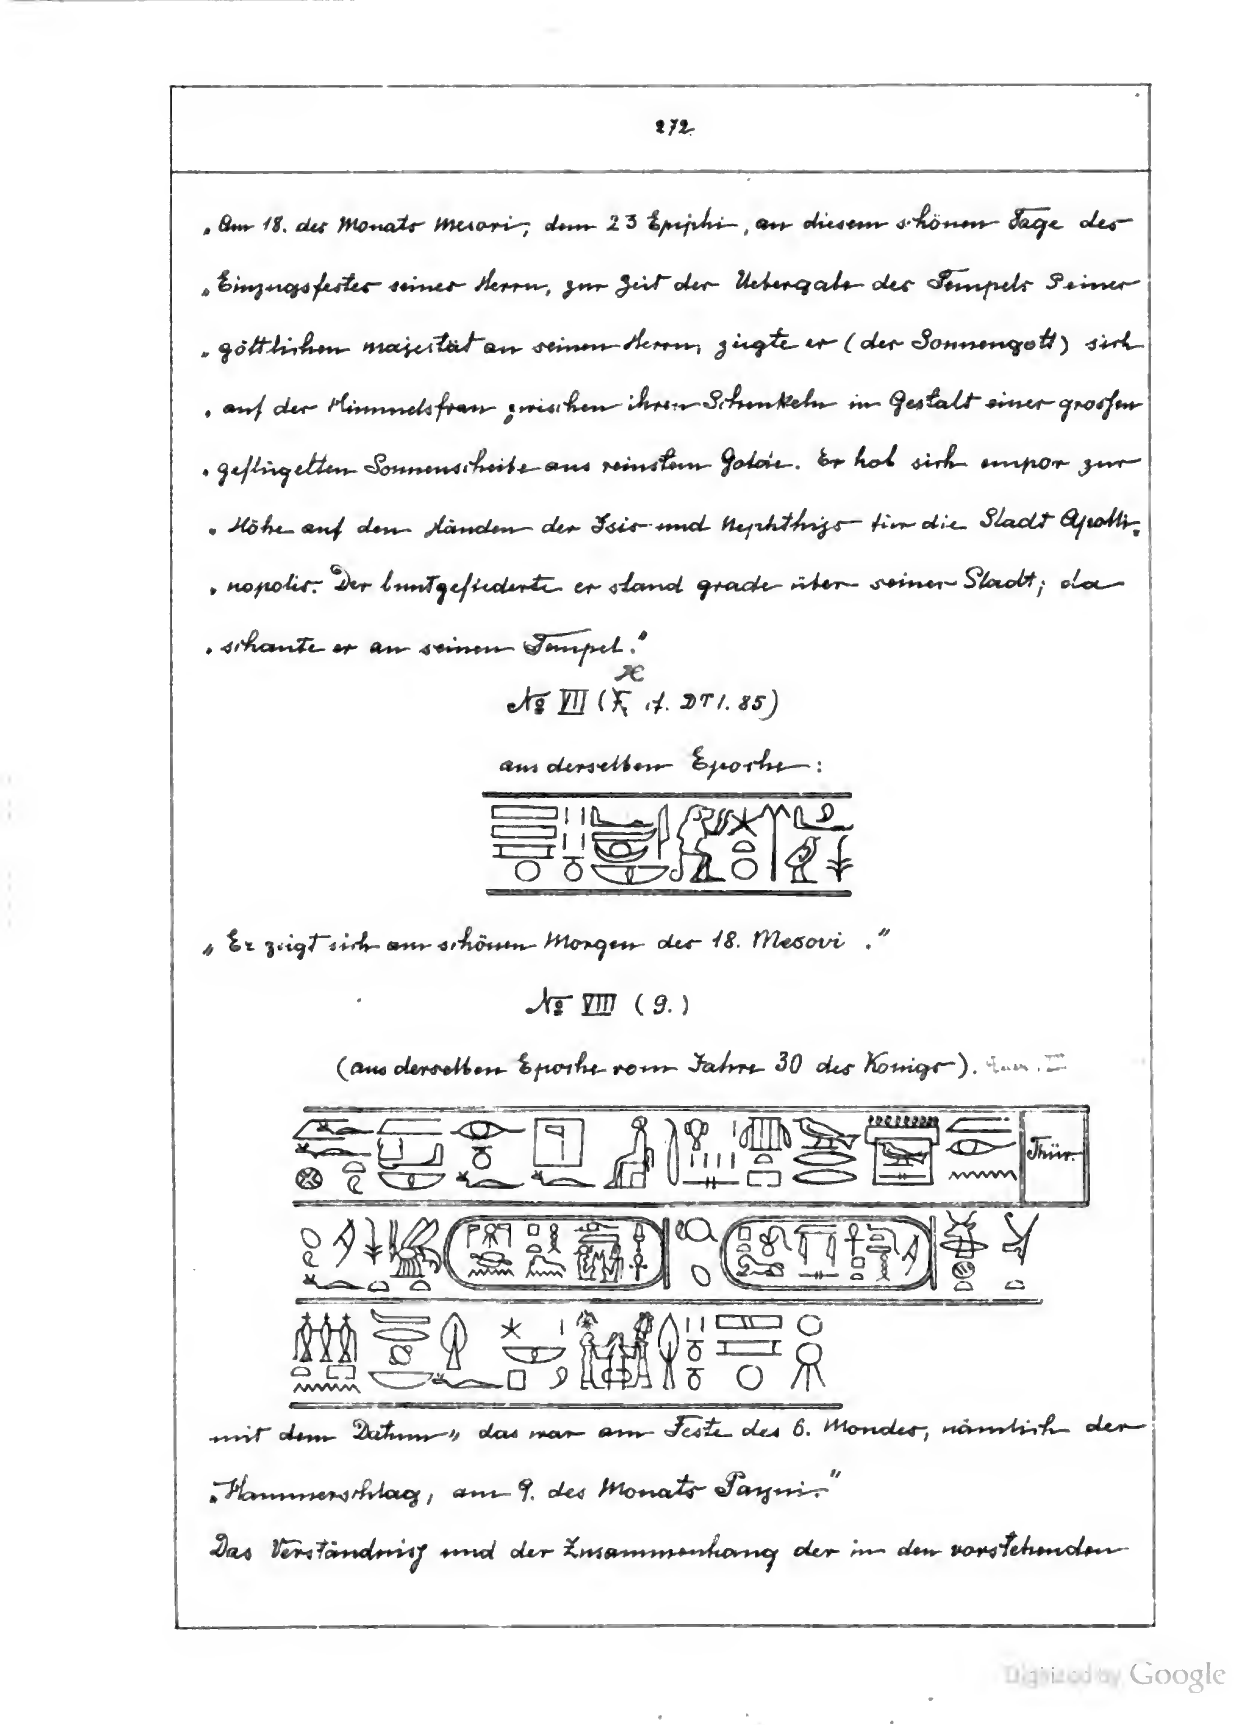 272.
„Am 18. des Monats Mesori, dem 23 Epiphi, an diesem schönen Tage des
„Einzugsfestes seines Herrn, zur Zeit der Uebergabe des Tempels Seiner
„göttlichen Majestät an seinen Herrn, zeigte er (der Sonnengott) sich
„auf der Himmelsfrau zwischen ihren Schenkeln in Gestalt einer grossen
„geflügelten Sonnenscheibe aus reinstem Golde. Er hob sich empor zur
„Höhe auf den Händen der Isis und Nephthys für die Stadt Apolli-
„nopolis. Der buntgefiederte er stand grade über seiner Stadt; da
„schaute er an seinen Tempel."
№ VII ( . DTI. 85)
aus derselben Epoche:
„Er zeigt sich am schönen Morgen des 18. Mesori."
№ VIII (9.)
(aus derselben Epoche vom Jahre 30 des Königs).
Thür.
mit dem Datum „das war am Feste des 6. Mondes, nämlich der
„Hammerschlag, am 9. des Monats Payni."
Das Verständniss und der Zusammenhang der in den vorstehenden
Digitized by Google